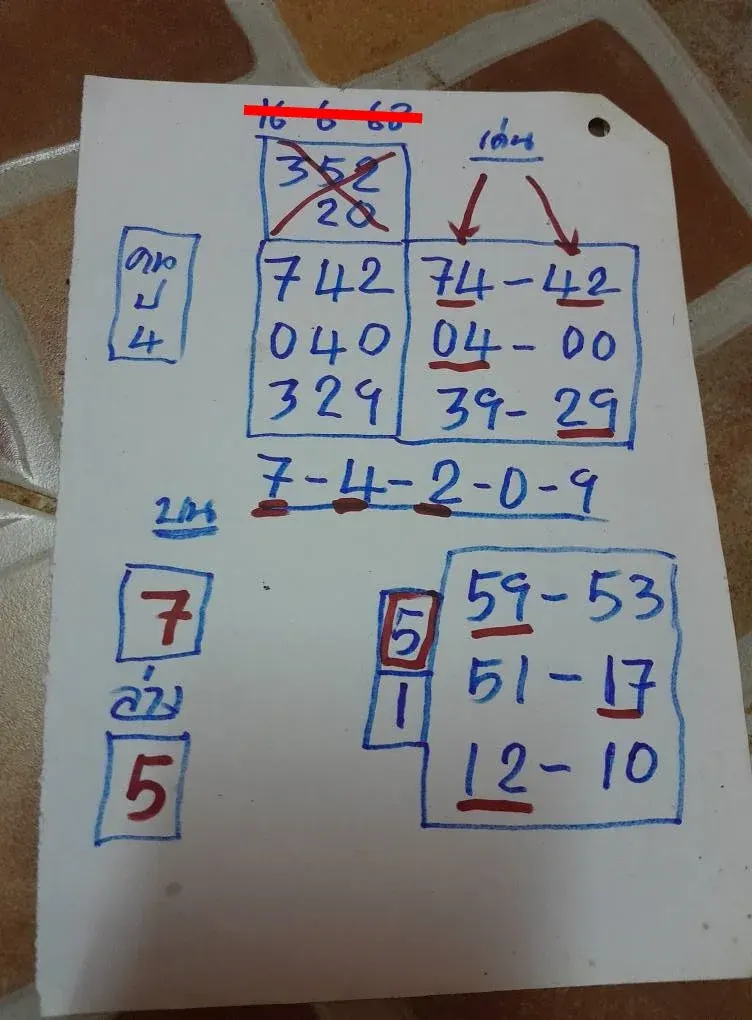 16 6 68
เด่น
352
20
คน
ป
4
742 74-42
040 04-00
329 39-29
7-4-2-0-9
บน
7
ล่าง
5
5
1
59-53
51-17
12-10